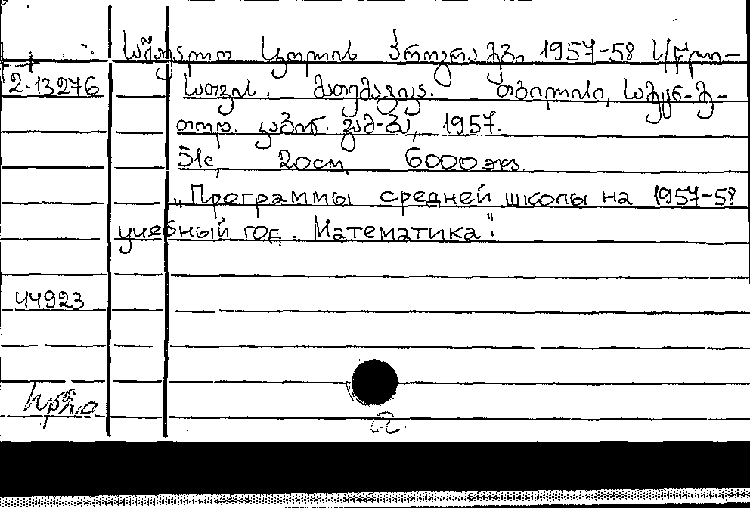 საშუალო სკოლის პროგრამები 1957-58 ს/წლი-
2.13276 სათვის. მათემატიკა. თბილისი, სამეც.-მ-
თოდ. კაბინ. გამ-ბა, 1957.
51с, 20см, 6000 экз
"Программы средней школы на 1957-58
учебный год. Математика".
44923